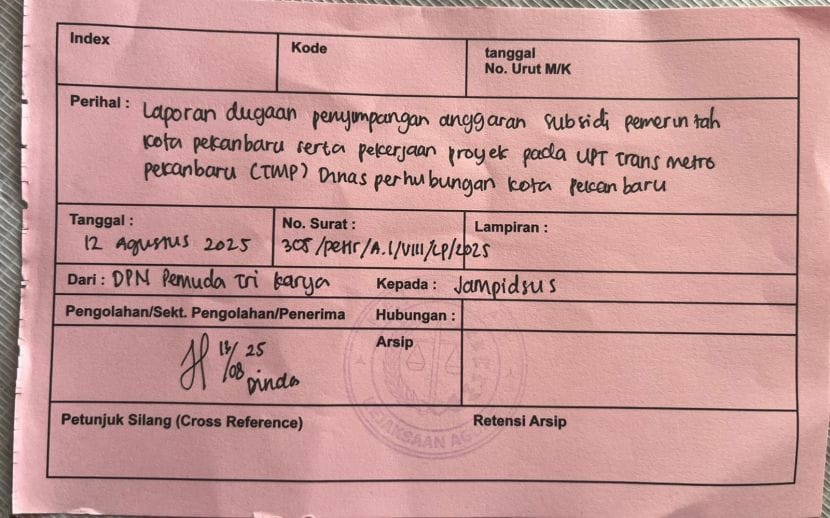 Index
Kode
tanggal
No. Urut M/K
Perihal : Laporan dugaan penyimpangan anggaran subsidi pemerintah
kota pekanbaru serta pekerjaan proyek pada UPT trans metro
pekanbaru (TMP) Dinas perhubungan kota pekanbaru
Tanggal :
12 Agustus 2025
No. Surat :
305/PeTir/A.1/VIII/LP/2025
Lampiran :
Dari : DPN Pemuda Tri karya
Kepada : Jampidsus
Pengolahan/Sekt. Pengolahan/Penerima
Hubungan :
13/08 25
Dinda
Arsip
KEJAKSAAN AGUNG
Petunjuk Silang (Cross Reference)
Retensi Arsip